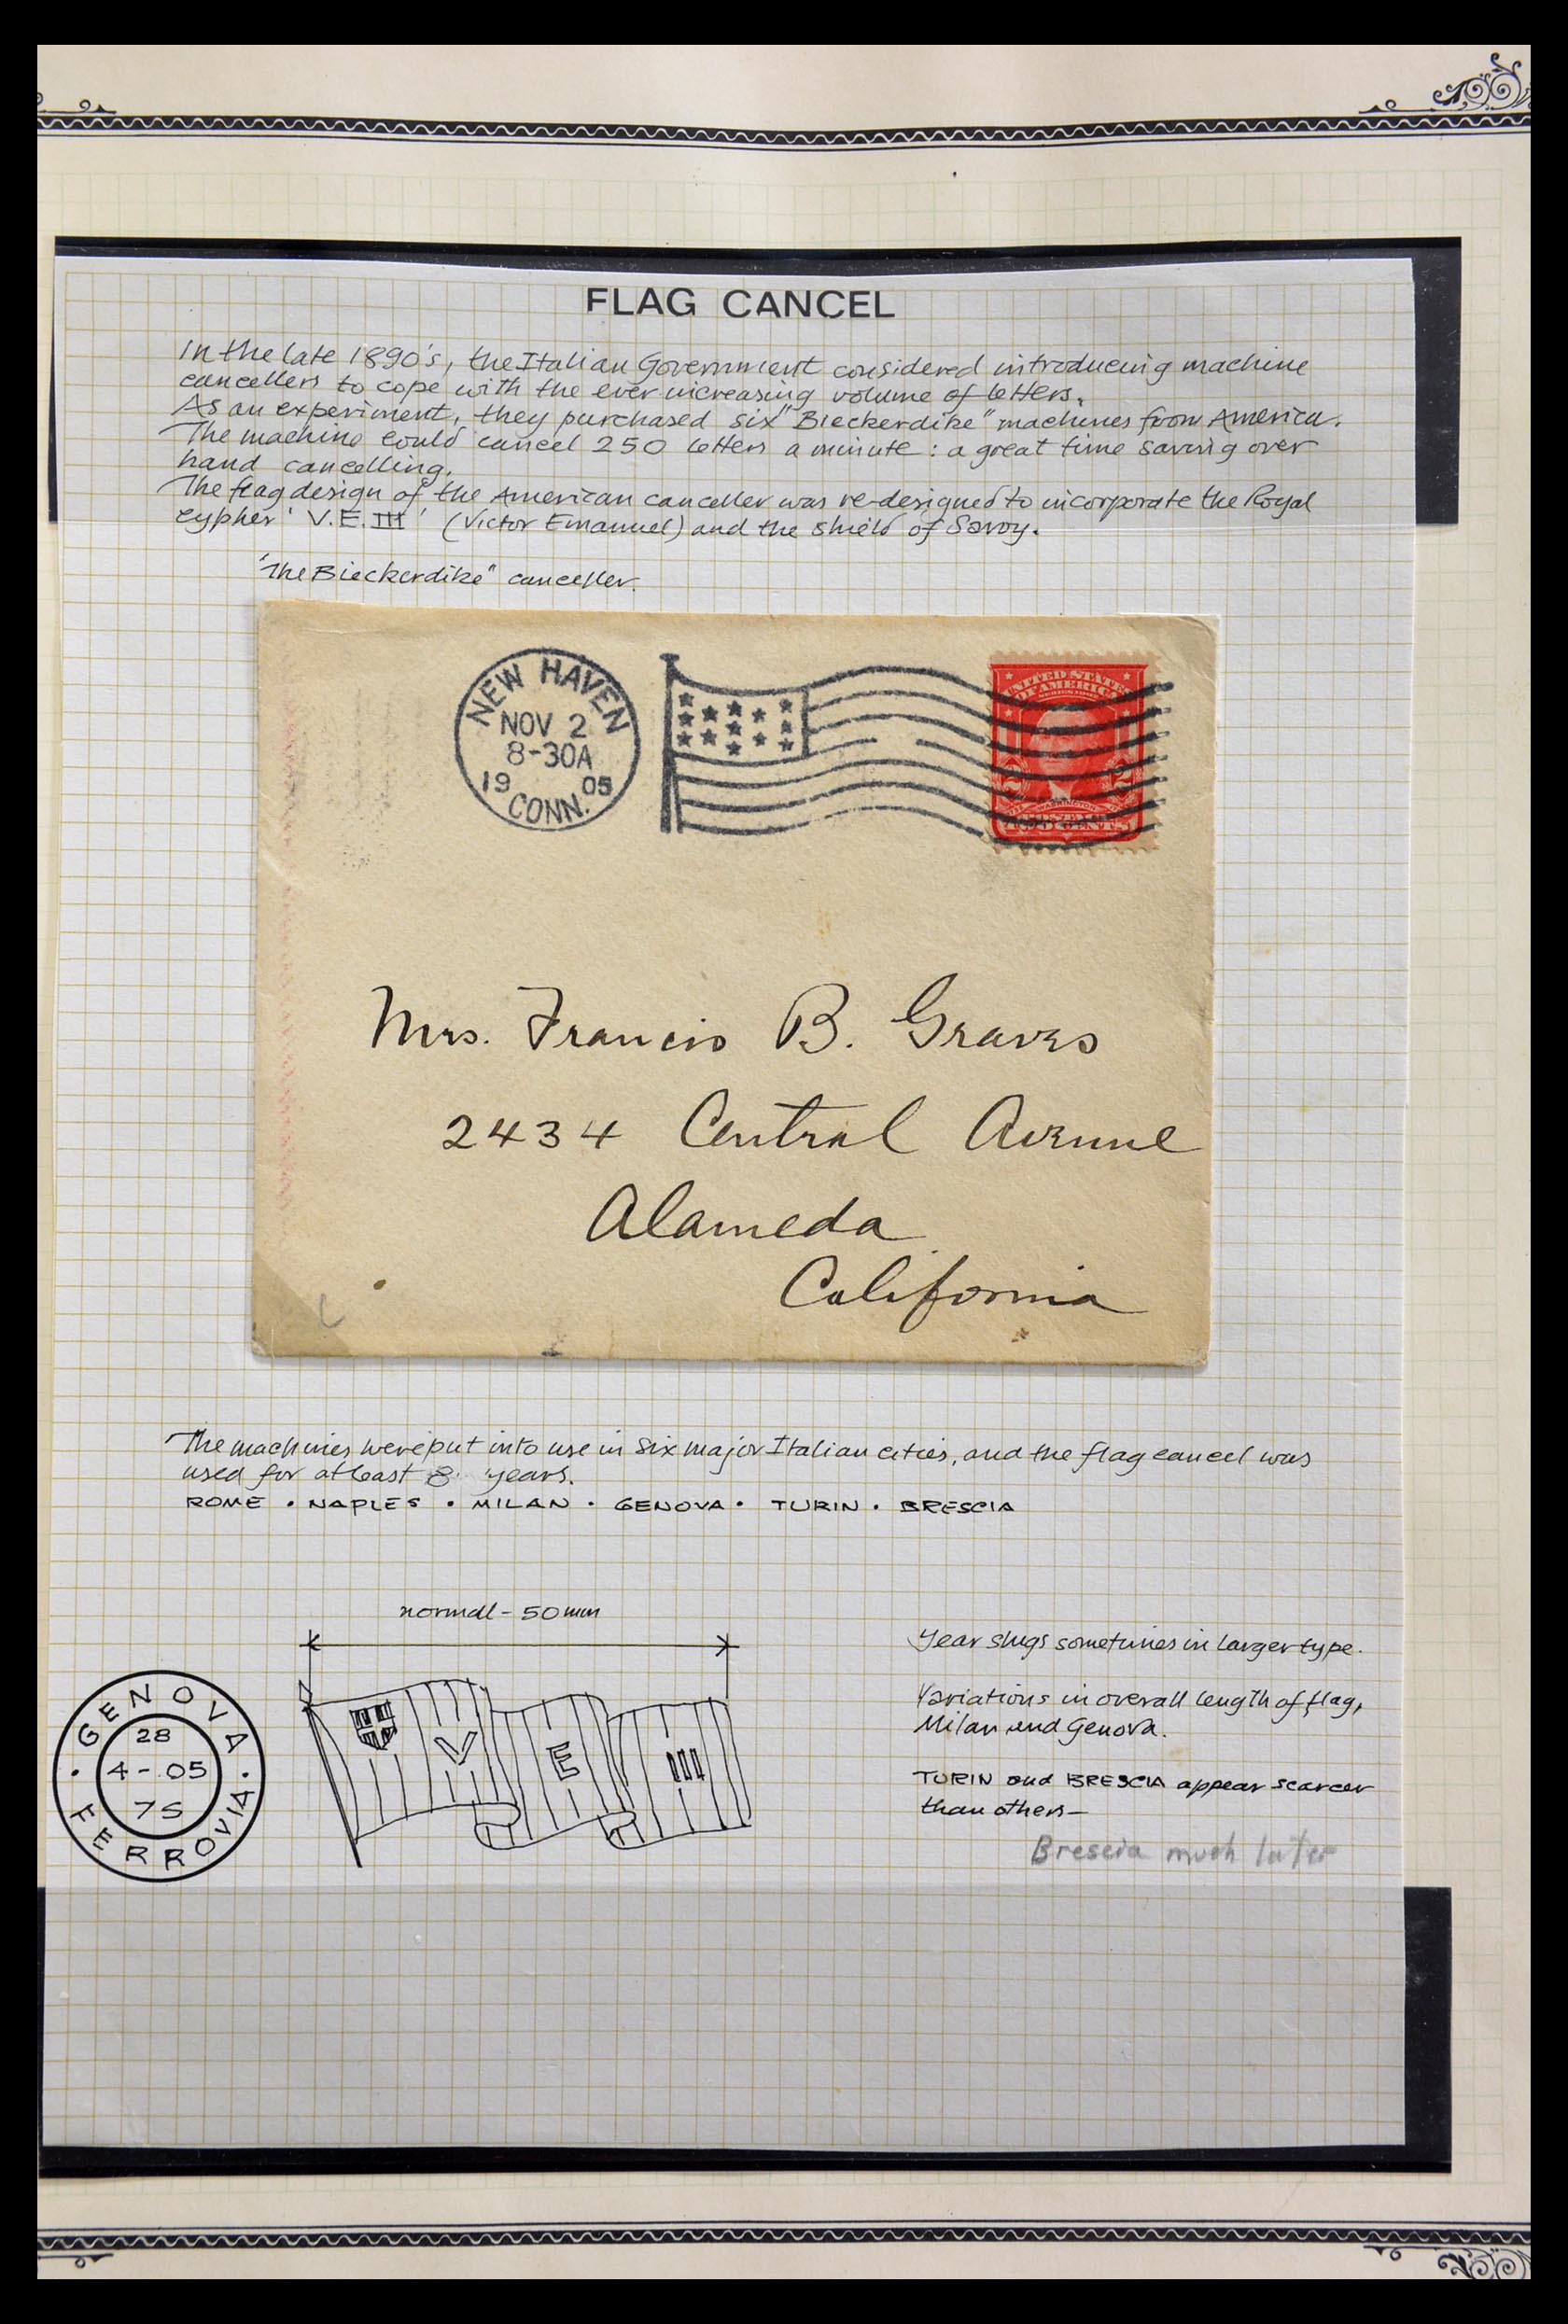 FLAG CANCEL
In the late 1890's, the Italian Government considered introducing machine
cancellers to cope with the ever increasing volume of letters.
As an experiment, they purchased six "Bleckerdike" machines from America.
The machine could cancel 250 letters a minute : a great time saving over
hand cancelling.
The flag design of the American canceller was re-designed to incorporate the Royal
cypher ' V.E.III ' (Victor Emanuel) and the shield of Savoy.
"The Bleckerdike" canceller.
NEW HAVEN
NOV 2
8-30A
19 05
CONN.
UNITED STATES
OF AMERICA
WASHINGTON
2 2
TWO CENTS
Mrs. Francis B. Graves
2434 Central Avenue
Alameda
California
The machines were put into use in six major Italian cities, and the flag cancel was
used for at least 8 years.
ROME • NAPLES • MILAN • GENOVA • TURIN • BRESCIA
normal - 50 mm
GENOVA
28
4 - 05
7S
FERROVIA
V E III
Year slugs sometimes in larger type.
Variations in overall length of flag,
Milan and Genova.
TURIN and BRESCIA appear scarcer
than others —
Brescia much later